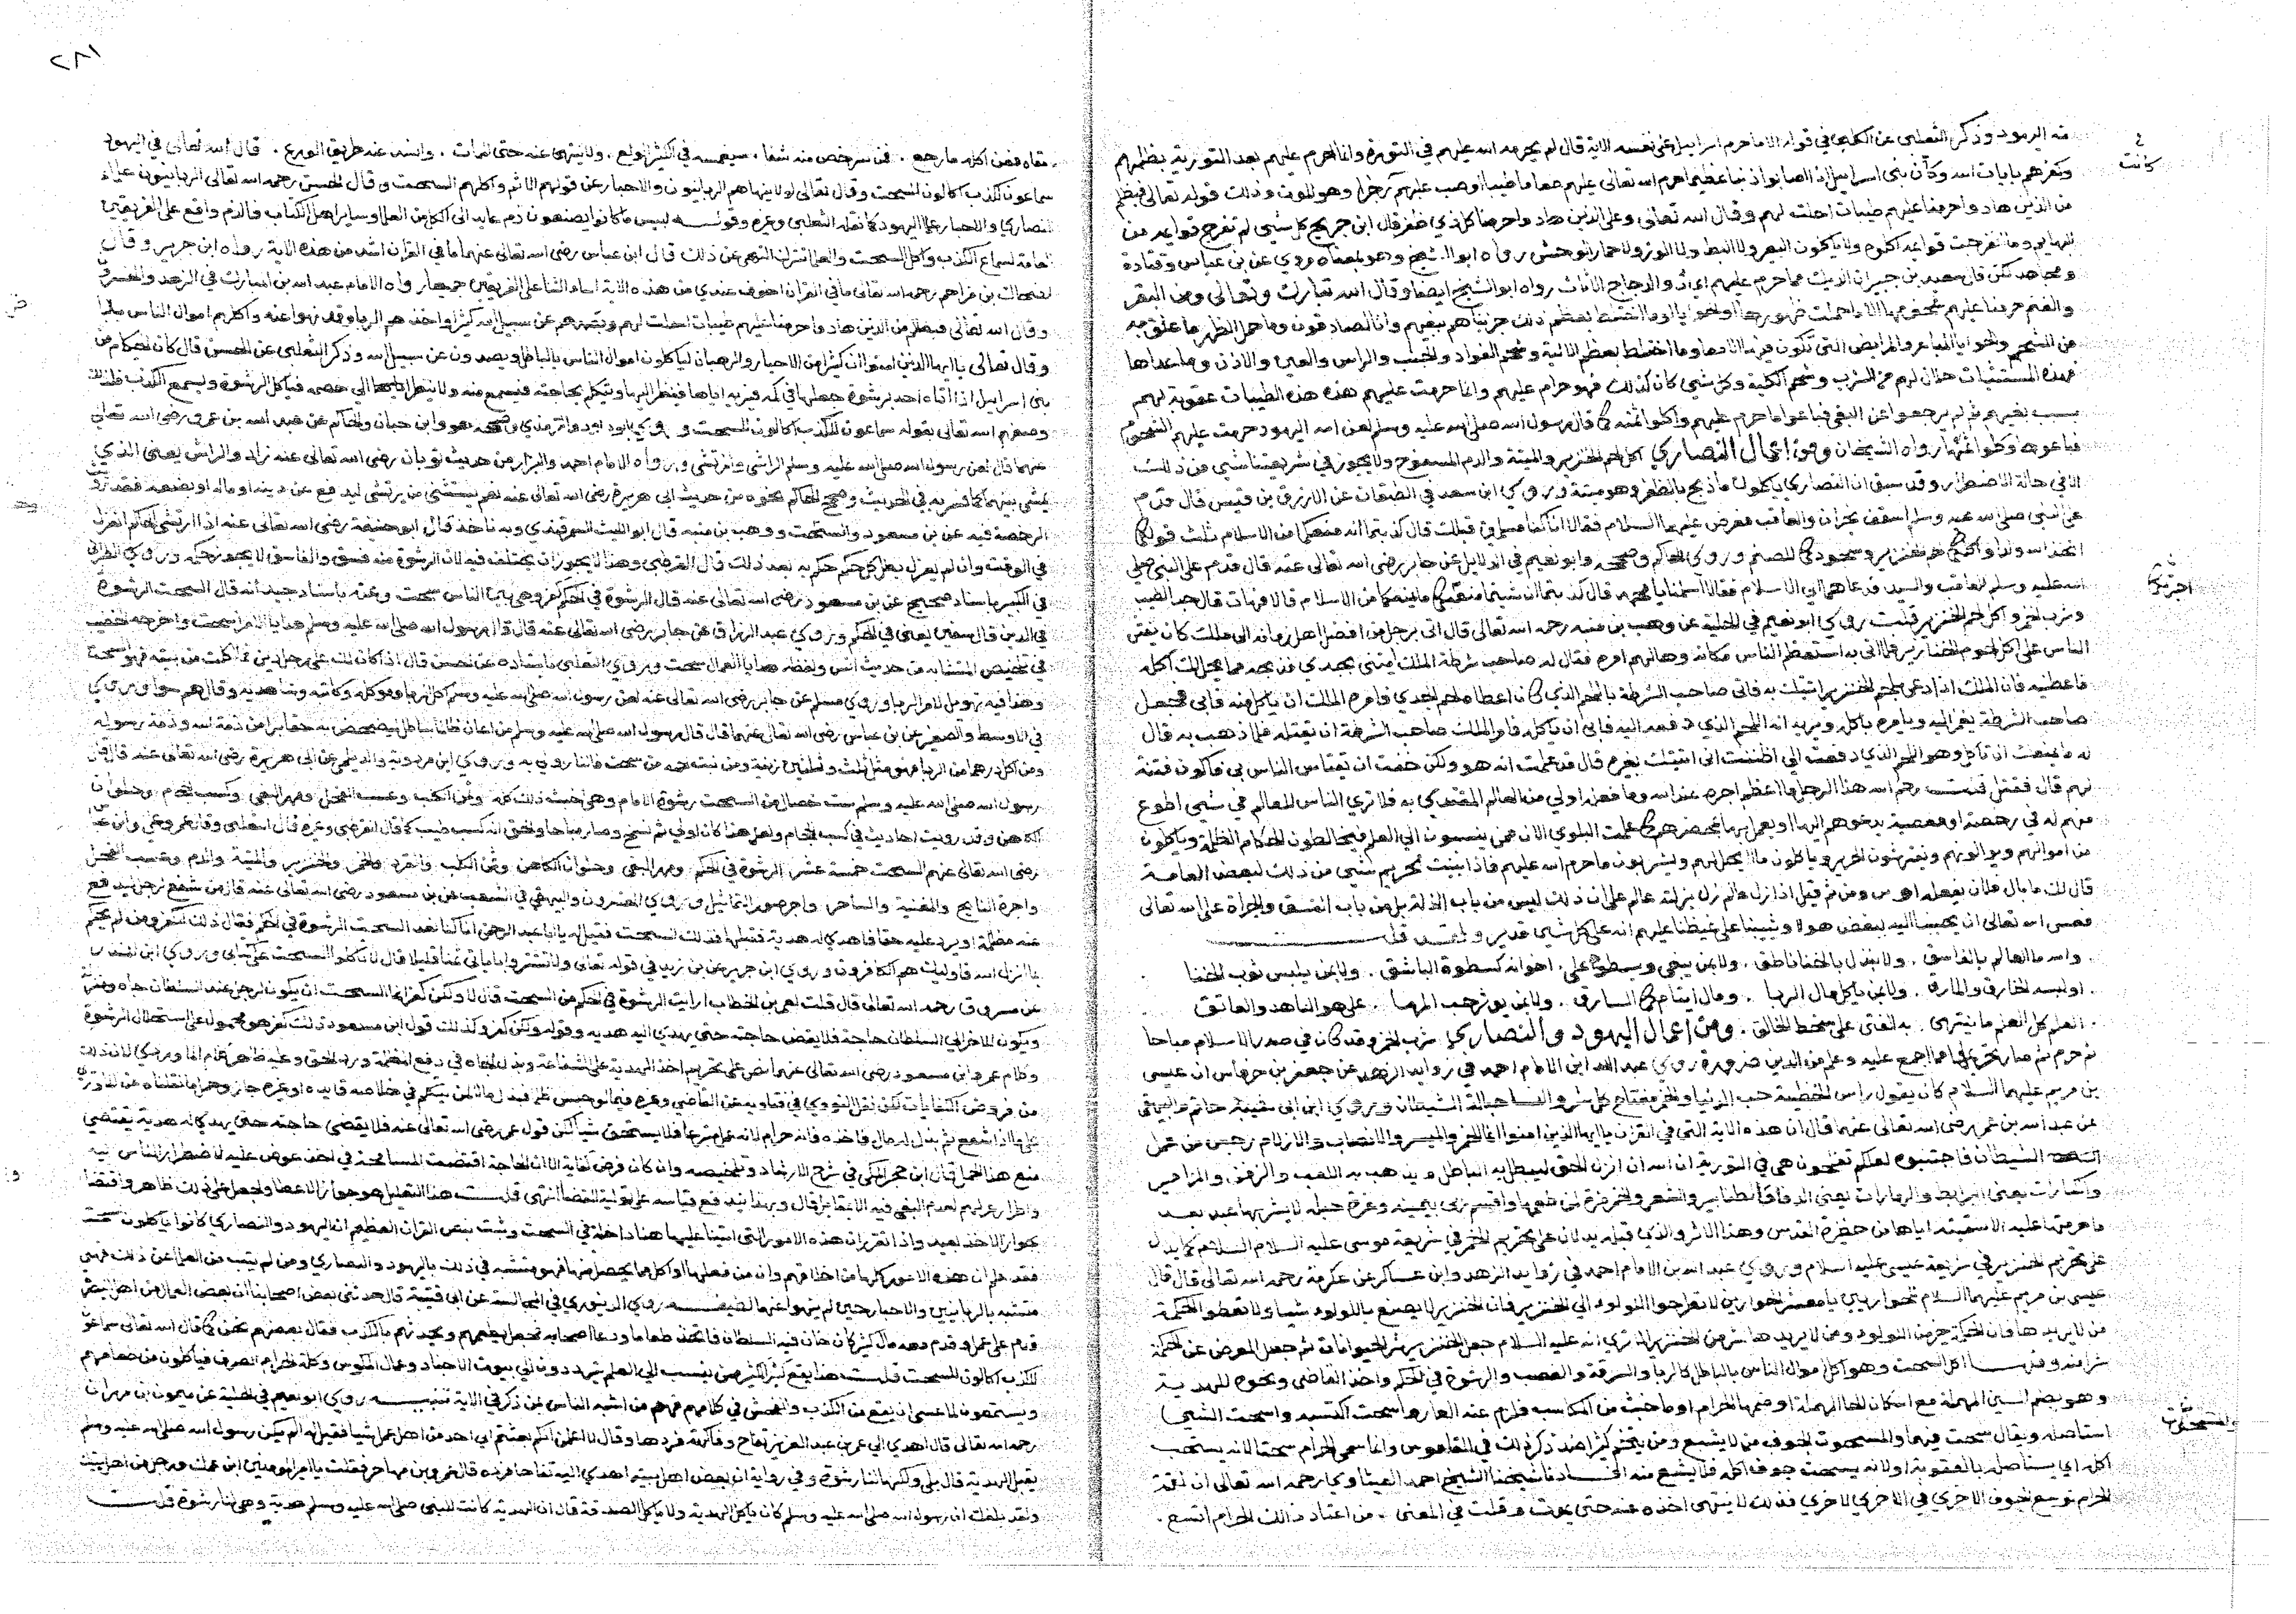 منه اليهود وذكر الثعلبي عن الكلبي في قوله الا ما حرم اسرائيل على نفسه الاية قال لم يحرمه الله عليهم في التورية وانما حرم عليهم بعد التورية بظلمهم
وكفرهم بايات الله وكان بنو اسرائيل اذا اصابوا ذنبا عظيما حرم الله تعالى عليهم طعاما طيبا او صب عليهم رجزا وهو الموت وذلك قوله تعالى فبظلم
كانت
من الذين هادوا حرمنا عليهم طيبات احلت لهم وقال الله تعالى وعلى الذين هادوا حرمنا كل ذي ظفر قال ابن جريج كل شيء لم تفرج قوائمه من
البهايم وما انفرجت قوائمه اكلوه ولا ياكلون البعير ولا البط ولا الوز ولا حمار الوحش رواه ابو الشيخ وهو بمعناه مروي عن بن عباس وقتادة
ومجاهد لكن قال سعيد بن جبير ان الديك مما حرم عليهم اي والدجاج الاناث رواه ابو الشيخ ايضا وقال الله تبارك وتعالى ومن البقر
والغنم حرمنا عليهم شحومهما الا ما حملت ظهورهما او الحوايا او ما اختلط بعظم ذلك جزيناهم ببغيهم وانا لصادقون وما حمل الظهر ما علق به
من الشحم والحوايا المباعر والمرابض التي تكون فيه الامعا وما اختلط بعظم الالية وشحم الفواد والجنب والراس والعين والاذن وما عداها
فهذه المستثنيات حلال لهم شحم الثرب وشحم الكلية وكل شيء كان كذلك فهو حرام عليهم وانما حرمت عليهم هذه الطيبات عقوبة لهم
بسبب بغيهم ثم لم يرجعوا عن البغي فباعوا ما حرم عليهم واكلوا ثمنه كما قال رسول الله صلى الله عليه وسلم لعن الله اليهود حرمت عليهم الشحوم
فباعوها وكلوا اثمانها رواه الشيخان ومن اعمال النصاري اكل لحم الخنزير والميتة والدم المسفوح ولا يجوز في شريعتنا شي من ذلك
الا في حالة الاضطرار وقد سبق ان النصاري ياكلون ما ذبح بالظفر وهو ميتة وروي ابن سعد في الطبقات عن الازرق بن قيس قال قدم
على النبي صلى الله عليه وسلم اسقف نجران والعاقب فعرض عليهما السلام فقالا انا كنا مسلمين قبلك قال كذبتما انه منعكما من الاسلام ثلث قولكما
اتخذ الله ولدا واكلكما لحم الخنزير وسجودكما للصنم وروي الحاكم وصححه وابو نعيم في الدلايل عن جابر رضي الله تعالى عنه قال قدم على النبي صلى
الله عليه وسلم العاقب والسيد فدعاهما الى الاسلام فقالا اسلمنا يا محمد قال كذبتما ان شيتما اخبرتكما ما يمنعكما من الاسلام قالا فهات قال حب الصليب
اخبرتكما
وشرب الخمر واكل لحم الخنزير قلت روي ابو نعيم في الحلية عن وهب بن منبه رحمه الله تعالى قال اتى برجل من افضل اهل زمانه الى ملك كان يفتن
الناس على اكل لحوم الخنازير فلما اتى به استعظم الناس مكانه وهالهم امره فقال له صاحب شرطة الملك ايتني بجدي تذبحه مما يحل لك اكله
فاعطنيه فان الملك اذا دعى بلحم الخنزير اتيتك به فاتى صاحب الشرطة باللحم الذي كان اعطاه لحم الجدي فامره الملك ان ياكل منه فابى فجعل
صاحب الشرطة يغمز اليه ويامره باكله ويريه انه اللحم الذي دفعه اليه فابى ان ياكله فامر الملك صاحب الشرطة ان يقتله فلما ذهب به قال
له ما منعك ان تاكل وهو اللحم الذي دفعت الي اظننت اني اتيتك بغيره قال قد علمت انه هو ولكن خفت ان يقتاس الناس بي فاكون فتنة
لهم قال فقتل قلت رحم الله هذا الرجل ما اعظم اجره عند الله وما فعله اولى من العالم المقتدي به فلا تري الناس للعالم في شيء اطوع
منهم له في رخصة او معصية يدعوهم اليها او يعمل بها بمحضرهم كما عمت البلوي الان ممن ينسبون الى العلم فيخالطون الحكام الظلمة وياكلون
من اموالهم ويوالونهم ويفترشون الحرير وياكلون ما لا يحل لهم ويشربون ما حرم الله عليهم فاذا بينت تحريم شيء من ذلك لبعض العامة
قال لك ما بال فلان يفعله اهو س ومن ثم قيل اذا زل عالم زل بزلته عالم على ان ذلك ليس من باب الزلة بل من باب الفسق والجراة على الله تعالى
فعسى الله تعالى ان يحببنا اليه ببغض هولا ويثيبنا على غيظنا عليهم انه على كل شيء قدير ولقد قلت
والله ما العالم بالفاسق . ولا بنذل بالخنا ناطق . ولا بمن يبغي ويسطو على . اخوانه كسطوة الباشق . ولا بمن يلبس ثوب الخنا
او لبسه الخارق المارق . ولا بمن ياكل مال الربا . ومال ايتام كالسارق . ولا بمن يوثر حب المها . على هو الناهد والعاتق
العلم كل العلم ما ينتهي . به الفتى عن سخط الخالق . ومن اعمال اليهود والنصاري شرب الخمر وقد كان في صدر الاسلام مباحا
ثم حرم ثم صار تحريمها مما اجمع عليه وعلم من الدين ضرورة روي عبد الله ابن الامام احمد في زوايد الزهد عن جعفر بن حرفاس ان عيسى
بن مريم عليهما السلام كان يقول راس الخطيئة حب الدنيا والخمر مفتاح كل شر والنساء حبالة الشيطان وروي ابن ابي شيبة وابن ابي حاتم والبيهقي
عن عبد الله بن عمر رضي الله تعالى عنهما قال ان هذه الاية التي في القران يا ايها الذين امنوا انما الخمر والميسر والانصاب والازلام رجس من عمل
الشيطان فاجتنبوه لعلكم تفلحون هي في التورية ان الله انزل الحق ليبطل به الباطل ويذهب به اللعب والزفن والمزامير
والكنارات يعني البرابط والزمارات يعني الدف والطنابير والشعر والخمر مرة لمن طعمها واقسم ربي بيمينه وعزة حيله لا يشربها عبد بعد
ما حرمتها عليه الا سقيته اياها من حظيرة القدس وهذا الاثر والذي قبله يدلان على تحريم الخمر في شريعة موسى عليه السلام كما يدل
على تحريم الخنزير في شريعة عيسى عليه السلام وروي عبد الله بن الامام احمد في زوايد الزهد وابن عساكر عن عكرمة رحمه الله تعالى قال قال
عيسى بن مريم عليهما السلام للحواريين يا معشر الحواريين لا تطرحوا اللولو الى الخنزير فان الخنزير لا يصنع باللولو شيا ولا تعطوا الحكمة
من لا يريدها فان الحكمة خير من اللولو ومن لا يريدها شر من الخنزير الا تري انه عليه السلام جعل الخنزير شر الحيوانات ثم جعل المعرض عن الحكمة
شرا منه ومنها اكل السحت وهو اكل اموال الناس بالباطل كالربا والسرقة والغصب والرشوة في الحكم واخذ القاضي ونحوه للهدية
وهو بضم السين المهملة مع اسكان الحا المهملة او ضمها الحرام او ما خبث من المكاسب فلزم عنه العار واسحت اكتسبه واسحت الشيء
استاصله ويقال سحت فيهما والمسحوت الجوف من لا يشبع ومن يتخم كثيرا ضد ذكر ذلك في القاموس وانما سمي الحرام سحتا لانه يستحب
والمسحوت
اكله اي يستاصل بالعقوبة او لانه يسحت جوف اكله فلا يشبع منه افادنا شيخنا الشيخ احمد العيثاوي رحمه الله تعالى ان لقمة
الحرام توسع لجوف الاخري في الاخري لاخري فذلك لا ينتهي اخذه عنه حتى يموت وقلت في المعنى . من اعتاد ذلك الحرام اتسع .
٢٨١
معاه فمن اكله ما رجع . فمن سرخص منه شفا . سيغمسه في الكثير الولع . ولا ينتهي عنه حتى الممات . واين عنه طريق الورع . قال الله تعالى في اليهود
سماعون للكذب اكالون للسحت وقال تعالى لولا ينهاهم الربانيون والاحبار عن قولهم الاثم واكلهم السحت وقال الحسن رحمه الله تعالى الربانيون علماء
النصاري والاحبار علماء اليهود كما نقله الثعلبي وغيره وقوله لبيس ما كانوا يصنعون ذم عايد الى الكل من العلما وساير اهل الكتاب فالذم واقع على الفريقين
العامة لسماع الكذب واكل السحت والعلما لترك النهي عن ذلك قال ابن عباس رضي الله تعالى عنهما ما في القران اشد من هذه الاية رواه ابن جرير وقال
الضحاك بن مزاحم رحمه الله تعالى ما في القران اخوف عندي من هذه الاية اساء الثنا على الفريقين جميعا رواه الامام عبد الله بن المبارك في الزهد
وقال الله تعالى فبظلم من الذين هادوا حرمنا عليهم طيبات احلت لهم وبصدهم عن سبيل الله كثيرا واخذهم الربا وقد نهوا عنه واكلهم اموال الناس بالباطل
وقال تعالى يا ايها الذين امنوا ان كثيرا من الاحبار والرهبان لياكلون اموال الناس بالباطل ويصدون عن سبيل الله وذكر الثعلبي عن الحسن قال كان الحكام من
بني اسرائيل اذا اتاه احد برشوة جعلها في كمه فيريه اياها فينظر اليها ويتكلم بحاجته فيسمع منه ولا ينظر الى خصمه فياكل الرشوة ويسمع الكذب
وصفهم الله تعالى بقوله سماعون للكذب اكالون للسحت وروي ابو داود والترمذي وصححه هو وابن حبان والحاكم عن عبد الله بن عمرو رضي الله تعالى
عنهما قال لعن رسول الله صلى الله عليه وسلم الراشي والمرتشي ورواه الامام احمد والبزار من حديث ثوبان رضي الله تعالى عنه زاد والرايش يعني الذي
يمشي بينهما كما فسر به في الحديث وصحح الحاكم نحوه من حديث ابي هريرة رضي الله تعالى عنه نعم يستثنى من يرتشي ليدفع عن دينه او ماله او بضعه فقد
الرخصة فيه عن بن مسعود ووهب بن منبه قال ابو الليث السمرقندي وبه ناخذ قال ابو حنيفة رضي الله تعالى عنه اذا ارتشى الحاكم انعزل
في الوقت وان لم يعزل بطل كل حكم حكم به بعد ذلك قال القرطبي وهذا لا يجوز ان يختلف فيه لان الرشوة منه فسق والفاسق لا يجوز حكمه وروي الطبراني
في الكبير باسناد صحيح عن بن مسعود رضي الله تعالى عنه قال الرشوة في الحكم كفر وهي بين الناس سحت وعنه باسناد جيد انه قال السحت الرشوة
في الدين قال سفين يعني في الحكم وروي عبد الرزاق عن جابر رضي الله تعالى عنه قال قال رسول الله صلى الله عليه وسلم هدايا الامرا سحت واخرجه الخطيب
في تلخيص المتشابه من حديث انس ولفظه هدايا العمال سحت وروي الثعلبي باسناده عن الحسن قال اذا كان لك على رجل دين فما اكلت من بيته فهو سحت
وهذا فيه يؤول للربا وروي مسلم عن جابر رضي الله تعالى عنه لعن رسول الله صلى الله عليه وسلم اكل الربا وموكله وكاتبه وشاهديه وقال هم سوا وروي
في الاوسط والصغير عن بن عباس رضي الله تعالى عنهما قال قال رسول الله صلى الله عليه وسلم من اعان ظالما بباطل ليدحض به حقا برا من ذمة الله وذمة رسوله
ومن اكل درهما من الربا فهو مثل ثلث وثلثين زنية ومن نبت لحمه من سحت فالنار اولى به وروي ابن مردويه والديلمي عن ابي هريرة رضي الله تعالى عنه قال قال
رسول الله صلى الله عليه وسلم ست خصال من السحت رشوة الامام وهي اخبث ذلك كله وثمن الكلب وعسب الفحل ومهر البغي وكسب الحجام وحلوان
الكاهن وقد رويت احاديث في كسب الحجام ولعل هذا كان اولا ثم نسخ وصار مباحا والحق انه كسب طيب كما قال القرطبي وغيره قال الثعلبي وقال عمر وعلي وابن عباس
رضي الله تعالى عنهم السحت خمسة عشر الرشوة في الحكم ومهر البغي وحلوان الكاهن وثمن الكلب والقرد والخمر والخنزير والميتة والدم وعسب الفحل
واجرة النايح والمغنية والساحر واجر صور التماثيل وروي المفسرون والبيهقي في الشعب عن بن مسعود رضي الله تعالى عنه قال من شفع لرجل ليدفع
عنه مظلمة او يرد عليه حقا فاهدى له هدية فقبلها فذلك السحت فقيل يا ابا عبد الرحمن انا كنا نعد السحت الرشوة في الحكم فقال ذلك الكفر ومن لم يحكم
بما انزل الله فاوليك هم الكافرون وروي ابن جرير عن بن زيد في قوله تعالى ولا تشتروا باياتي ثمنا قليلا قال لا تاكلوا السحت على كتابي وروي ابن المنذر
عن مسروق رحمه الله تعالى قال قلت لعمر بن الخطاب ارايت الرشوة في الحكم من السحت قال لا ولكن كفر انما السحت ان يكون للرجل عند السلطان جاه ومنزلة
ويكون للاخر الى السلطان حاجة فلا يقضي حاجته حتى يهدي اليه هدية وقوله ولكن كفر وكذلك قول ابن مسعود ذلك كفر هو محمول على استحلال الرشوة
وكلام عمر وابن مسعود رضي الله تعالى عنهما نص على تحريم اخذ الهدية على الشفاعة وبذل الجاه في دفع المظلمة ورد الحق
من فروض الكفايات لكن نقل النووي في فتاويه عن القاضي وغيره فيما لو حبس ظلما فبذل مالا لمن يتكلم في خلاصه فايده او غيره جاز
على ما اذا شفع ثم بذل له مال فاخذه فانه حرام لانه عمل متبرعا فلا يستحق شيا لكن قول عمر رضي الله تعالى عنه فلا يقضي حاجته حتى يهدي له هدية يقتضي
منع هذا الحمل قال ابن حجر المكي في شرح الارشاد وتلخيصه وان كان فرض كفاية الا ان الحاجة اقتضت المسامحة في اخذ عوض عليه لاضطرار الناس اليه
قلت هذا التعليل هو جواز الاعطا
بجواز الاخذ بعيد واذا تقرر ان هذه الامور التي اتينا عليها هنا داخلة في السحت وثبت بنص القران العظيم ان اليهود والنصاري كانوا ياكلون السحت
فقد علم ان هذه الامور كلها من اخلاقهم وان من فعلها او اكل ما يحصل منها فهو متشبه في ذلك باليهود والنصاري ومن لم يتب من العلما عن ذلك فهو
متشبه بالربانيين والاحبار حين لم ينهوا عنها لطيفة روي الدينوري في المجالسة عن ابن قتيبة قال حدثني بعض اصحابنا ان بعض العمال من اهل
وقدم معه مال كثير كان خان فيه السلطان فاتخذ طعاما ودعا اصحابه فجعل يطعمهم ويحدثهم بالكذب فقال بعضهم نحن كما قال الله تعالى سماعون
للكذب اكالون للسحت قلت هذا يقع كثيرا لكثير ممن ينسب الى العلم يترددون الى بيوت الاجناد وعمال المكوس واكلة الحرام الصرف فياكلون من طعامهم
ويستمعون لما عسى ان يقع من الكذب والفحش في كلامهم فهم من اشبه الناس بمن ذكر في الاية تنبيه روي ابو نعيم في الحلية عن ميمون بن مهران
رحمه الله تعالى قال اهدي الى عمر بن عبد العزيز تفاح وفاكهة فردها وقال لا اعلمن انكم بعثتم الى احد من اهل عملي شيا فقيل له الم يكن رسول الله صلى الله عليه وسلم
يقبل الهدية قال بلى ولكنها لنا رشوة وفي رواية ان بعض اهل بيته اهدي اليه تفاحا فرده قال عمرو بن مهاجر فقلت يا امير المومنين ابن عمك ورجل من اهل بيتك
ولقد بلغك ان رسول الله صلى الله عليه وسلم كان ياكل الهدية ولا ياكل الصدقة فقال ان الهدية كانت للنبي صلى الله عليه وسلم هدية وهي لنا رشوة قلت